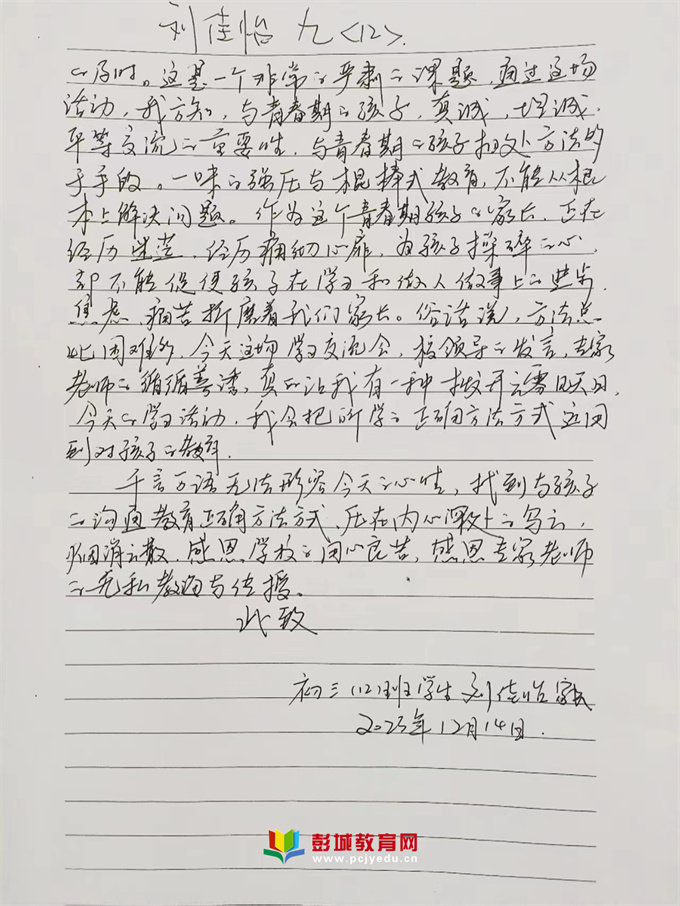 刘佳怡 九<12>.
的及时。这是一个非常的严肃的课题，通过这场
活动，我方知，与青春期的孩子，真诚，坦诚，
平等交流的重要性，与青春期的孩子相处方法的
重要的。一味的强压与棍棒式教育，不能从根
本上解决问题。作为这个青春期孩子的家长，正在
经历迷茫，经历痛彻心扉，为孩子操碎的心，
却不能促使孩子在学习和做人做事上的进步，
焦虑、痛苦折磨着我们家长。俗话说，方法总
比困难多，今天这场学习交流会，校领导的发言，专家
老师的循循善诱，真的让我有一种拨开云雾见天日，
今天的学习活动，我会把所学的正确方法方式运用
到对孩子的教育.
千言万语无法形容今天的心情，找到与孩子
的沟通教育正确方法方式，压在内心深处的乌云，
烟消云散，感恩学校的用心良苦，感恩专家老师
的无私教导与传授。
此致
初三(12)班学生刘佳怡家长
2023年12月14日.
彭城教育网
www.pcjyedu.cn